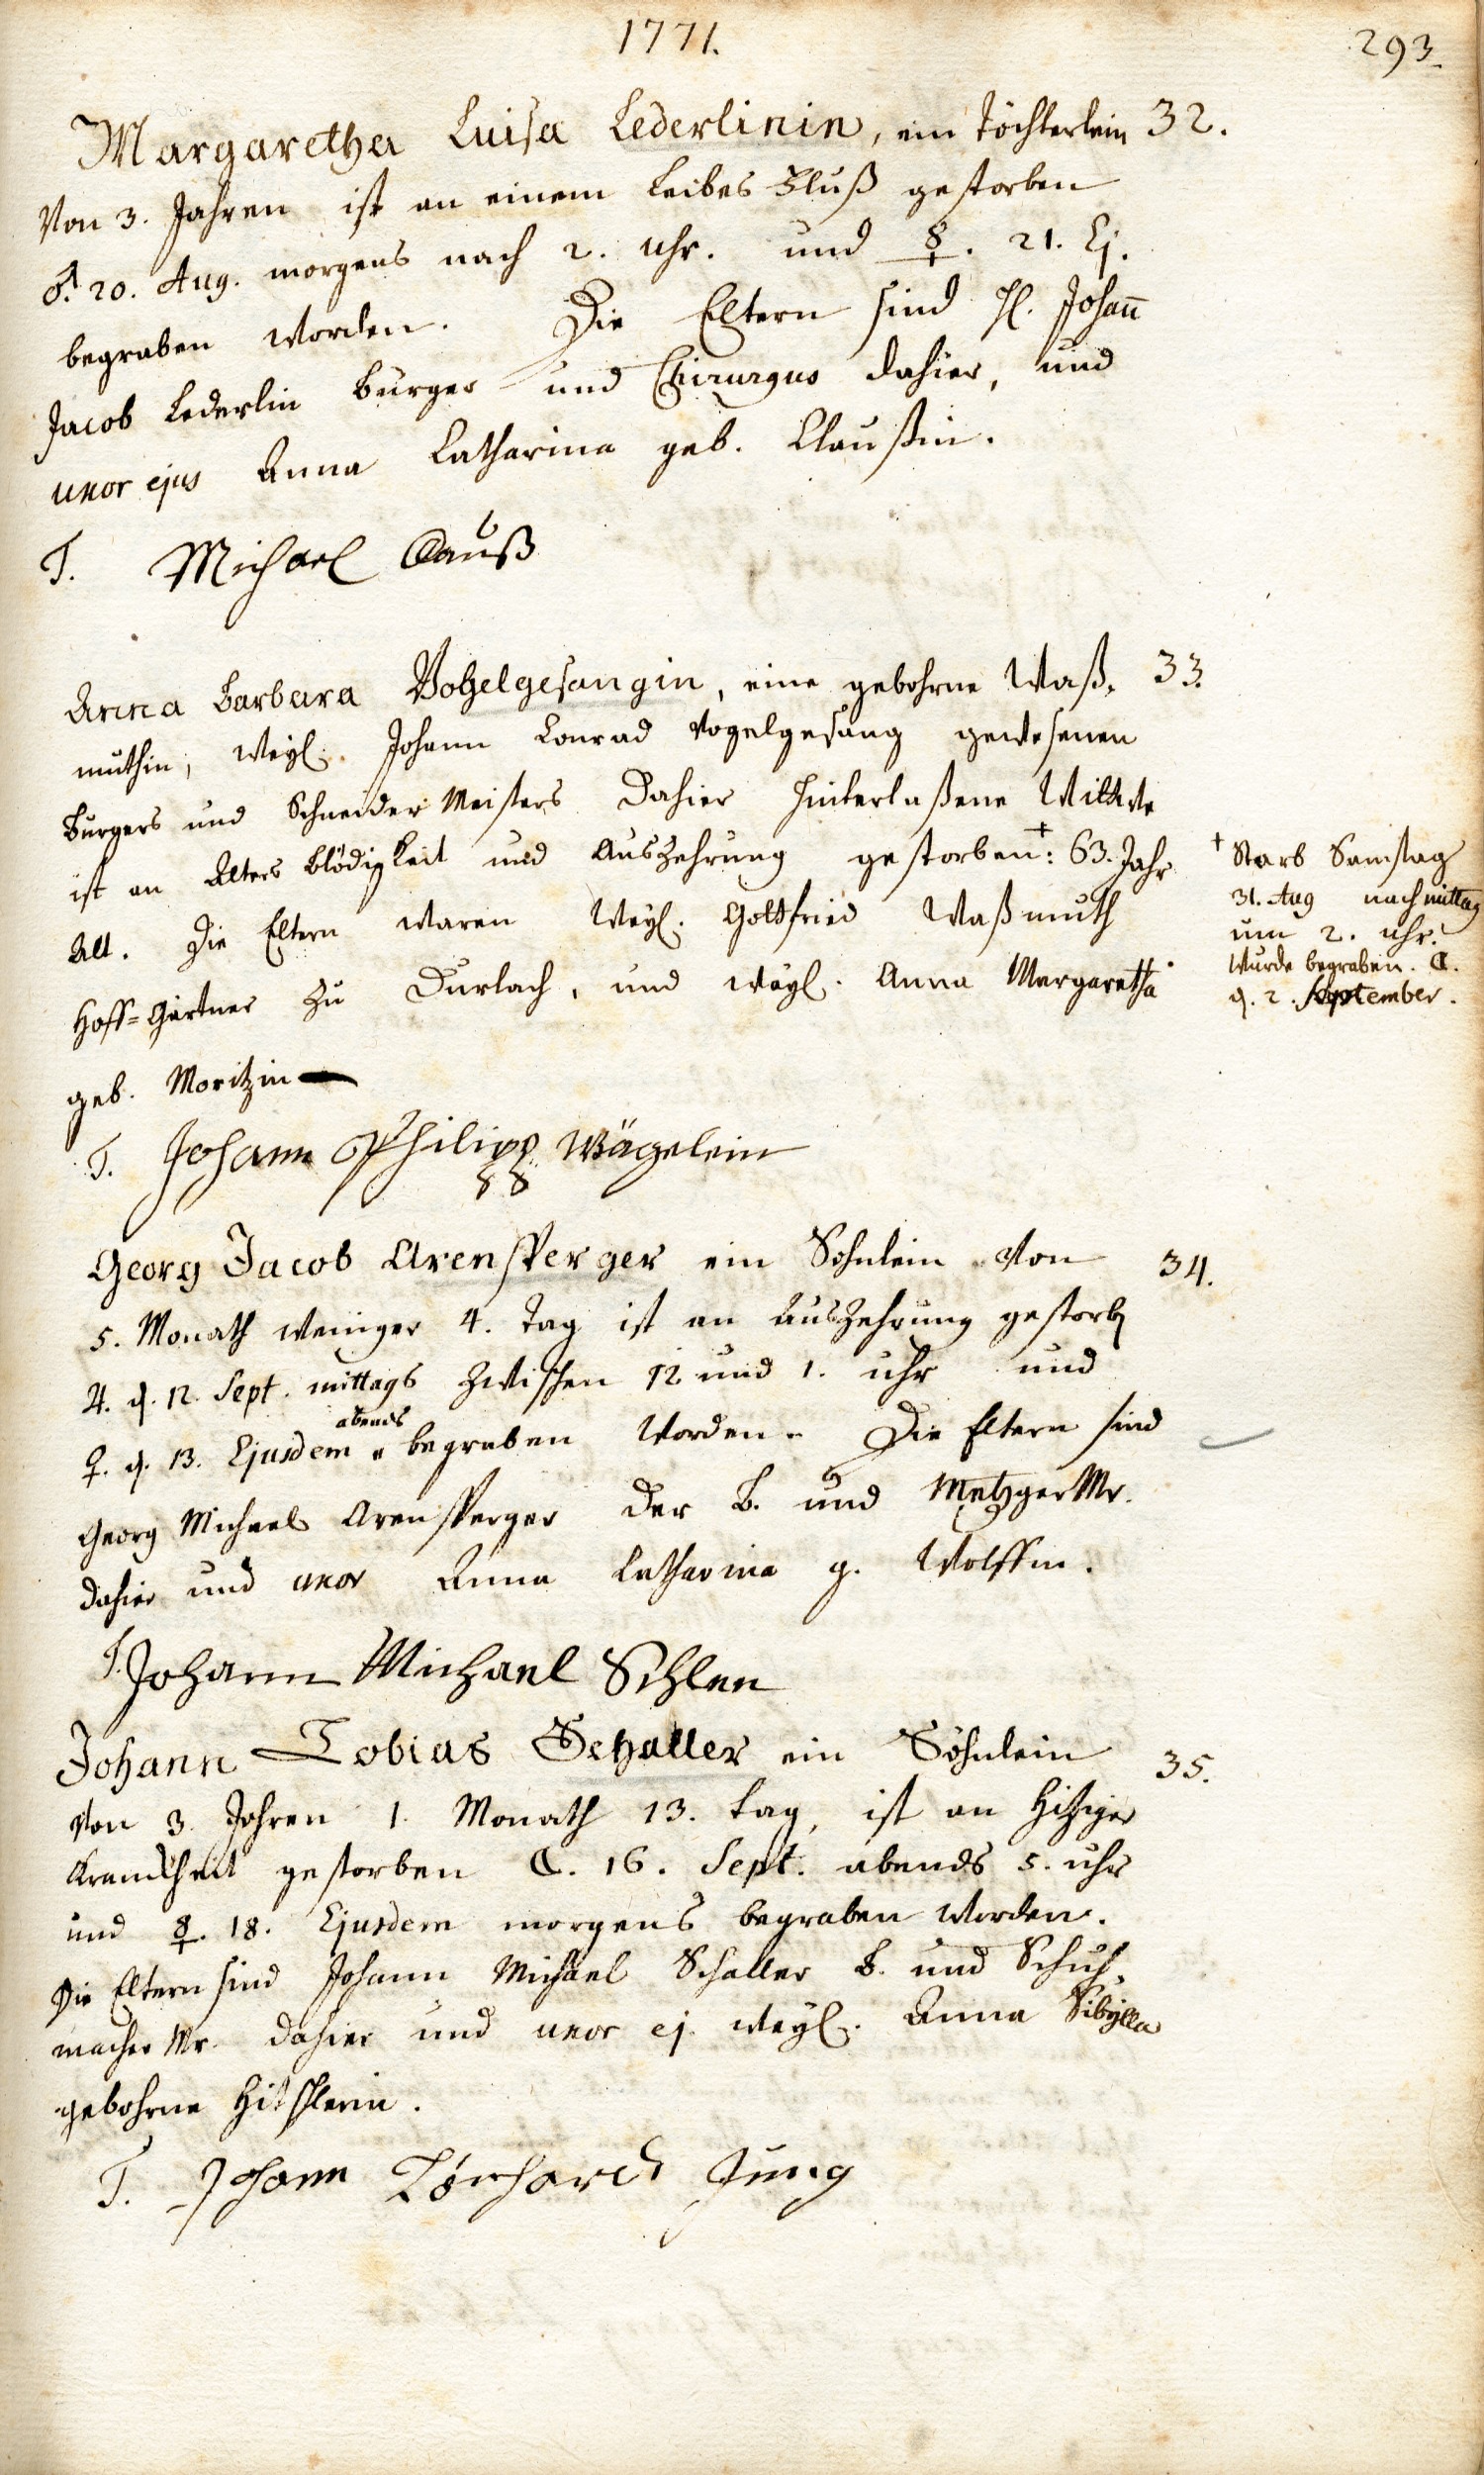 1771.
293.
Margaretha Luisa Lederlinin, ein Töchterlein 32.
von 3. Jahren ist an einem Leibes Fluß gestorben
♂. 20. Aug. morgens nach 2. uhr. und ☿. 21. Ej.
begraben worden. Die Eltern sind H. Johañ
Jacob Lederlin burger und Chirurgus dahier, und
uxor ejus Anna Catharina geb. Claußin.
T. Michael Clauß
Anna Barbara Vogelgesangin, eine gebohrne Waß- 33.
muthin, weyl. Johann Conrad Vogelgesang gewesenen
burgers und Schneider Meisters dahier hinterlaßene Wittwe
ist an Alters blödigkeit und Auszehrung gestorben:† 63. Jahr
Alt. Die Eltern waren weyl. Gottfried Waßmuth
Hoff-Gärtner zu Durlach, und weyl. Anna Margaretha
geb. Moritzin
† Starb Samstag
31. Aug nachmittag
um 2. uhr.
wurde begraben. ☾.
d. 2. September.
T. Johann Philipp Wägelein
Georg Jacob Arensperger ein Söhnlein von 34.
5. Monath weniger 4. Tag ist an Auszehrung gestorb
♃. d. 12. Sept. mittags zwischen 12 und 1. uhr und
abends
♀. d. 13. Ejusdem begraben worden. Die Eltern sind
Georg Michael Arensperger der B. und Metzger Mr.
dahier und uxor Anna Catharina g. Wolffin.
T. Johann Michael
Johann Tobias Schaller ein Söhnlein 35.
von 3. Jahren 1. Monath 13. tag, ist an hitziger
Kranckheit gestorben ☾. 16. Sept. abends 5. uhr
und ☿. 18. Ejusdem morgens begraben worden.
Die Eltern sind Johann Michael Schaller B. und Schuh-
macher Mr. dahier und uxor ej. weyl. Anna Sibylla
gebohrne
T. Johann Jung